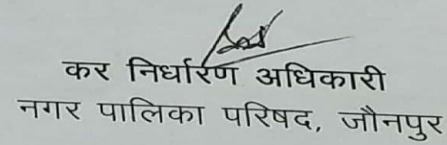 कर निर्धारण अधिकारी
नगर पालिका परिषद, जौनपुर